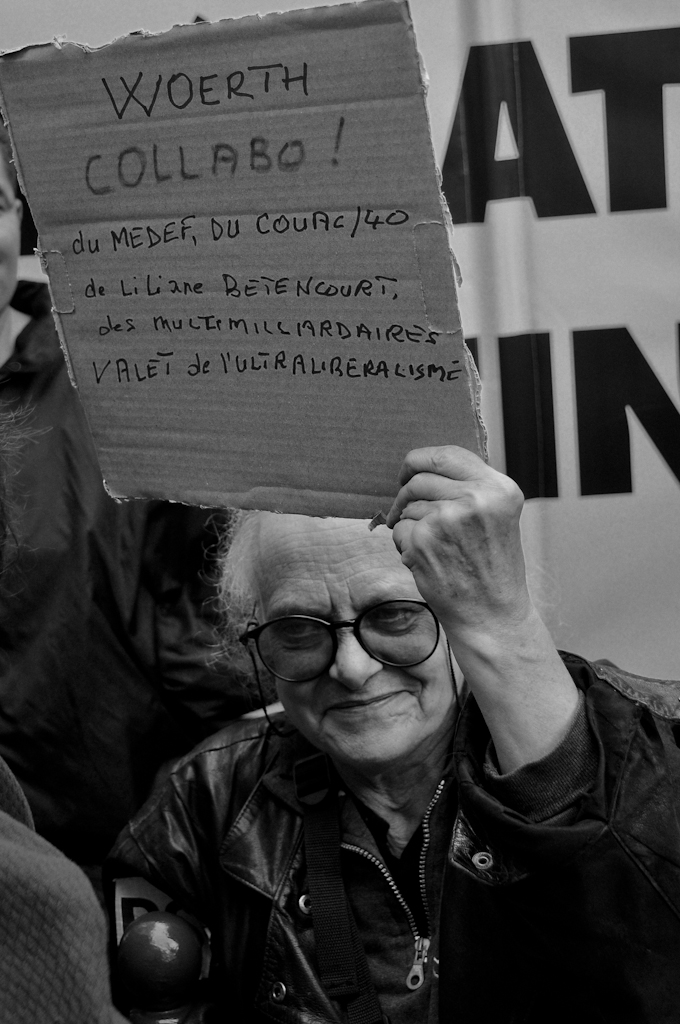 WOERTH
COLLABO !
du MEDEF, DU COUAC/40
de LiLiane BETENCOURT,
des MULTIMILLIARDAIRES
VALET de l'ULTRALIBERALISME
AT
IN